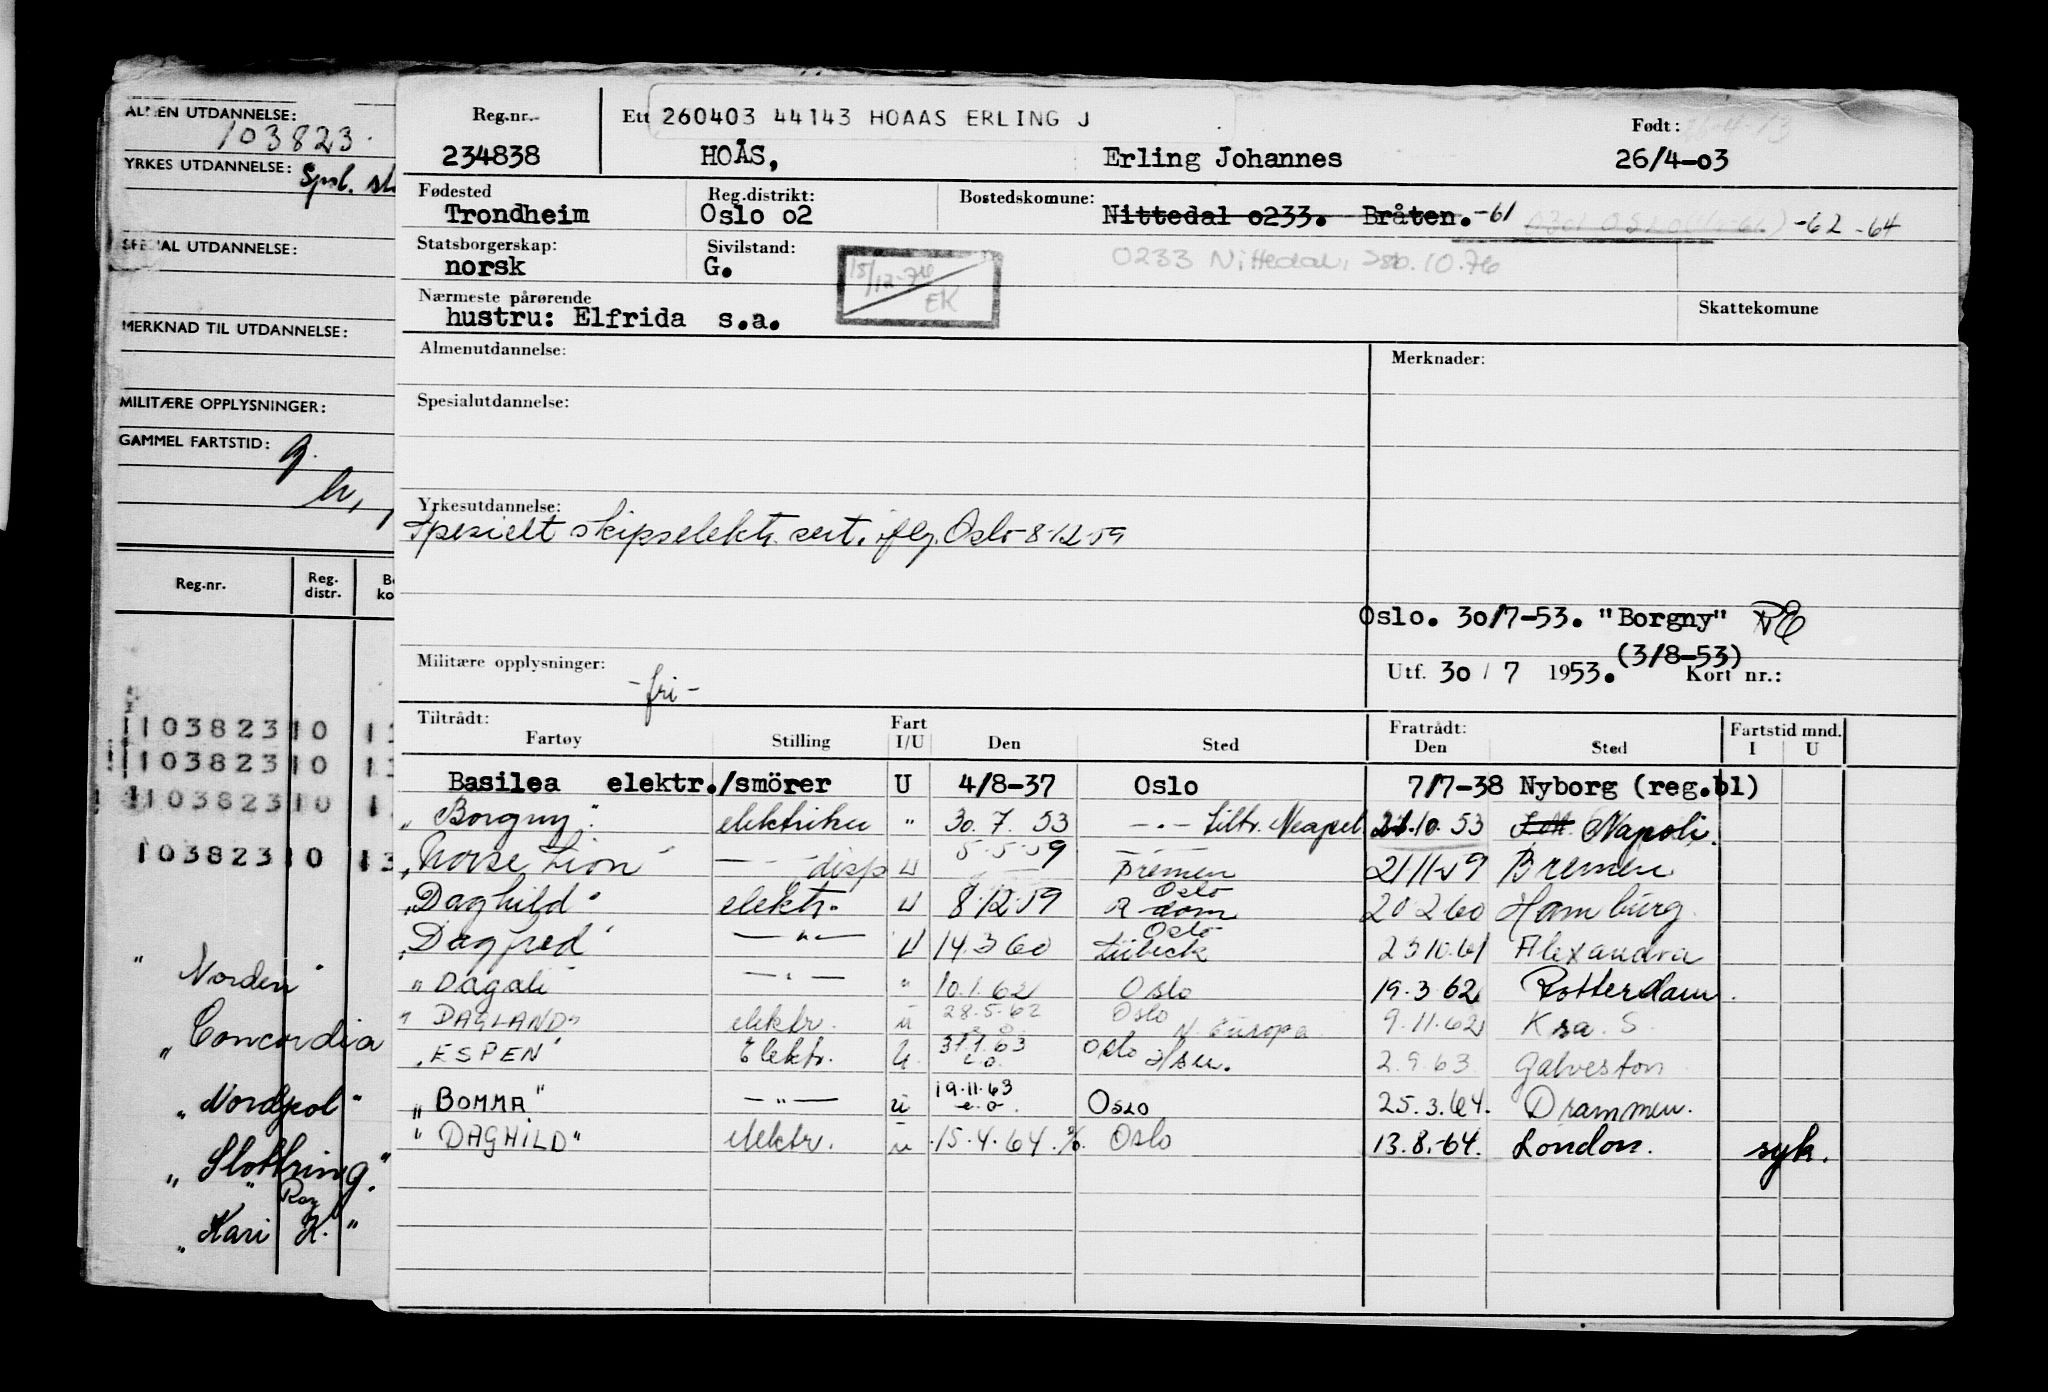 ALMEN UTDANNELSE:
103823.
YRKES UTDANNELSE: Spsl.
SPESIAL UTDANNELSE:
MERKNAD TIL UTDANNELSE:
MILITÆRE OPPLYSNINGER:
GAMMEL FARTSTID:
Reg.nr. Reg. distr.
103823 0
103823 0
103823 0
103823 0
" Norden "
„ Concordia
„ Nordpol "
„ Slottring "
Roy
„ Kari K. "
Reg.nr. Ett 260403 44143 HOAAS ERLING J Født:
234838 HOÅS, Erling Johannes 26/4-03
Fødested Reg.distrikt: Bostedskommune:
Trondheim Oslo 02 Nittedal 0233. Bråten. -61 -62 -64
Statsborgerskap: Sivilstand:
norsk G. 15/12-76 EK 0233 Nittedal, 10.76
Nærmeste pårørende Skattekomune
hustru: Elfrida s.a.
Almenutdannelse: Merknader:
Spesialutdannelse:
Yrkesutdannelse:
Spesielt skipselektr. sert. iflg. Oslo 8-12-59
Oslo. 30/7-53. "Borgny"
(3/8-53)
Militære opplysninger: -fri- Utf. 30 / 7 1953. Kort nr.:
Tiltrådt: Fart Fratrådt: Fartstid mnd.
Fartøy Stilling I/U Den Sted Den Sted I U
Basilea elektr./smörer U 4/8-37 Oslo 7/7-38 Nyborg (reg.bl)
„ Borgny " elektriker " 30.7.53 — " — tiltr. Neapel 21.10.53 Napoli.
„ Norse Lion " — disp U 5.5.59 Bremen 21.11.59 Bremen
„ Daghild " elektr. U 8.12.59 Oslo R-dam 20.2.60 Hamburg.
„ Dagfred " — " — U 14.3.60 Oslo Lübeck 23.10.61 Alexandra
" Dagali " — " — " 10.1.62 Oslo 19.3.62 Rotterdam.
" DAGLAND " elektr. u 28.5.62 Oslo N. Europa 9.11.62 Ksa. S.
„ ESPEN " Elektr. U. Oslo 2.9.63 Galveston
„ BOMMA " — " — u 19.11.63 e.o. Oslo 25.3.64. Drammen.
" DAGHILD " elektr. u 15.4.64. Oslo 13.8.-64. London. syk.